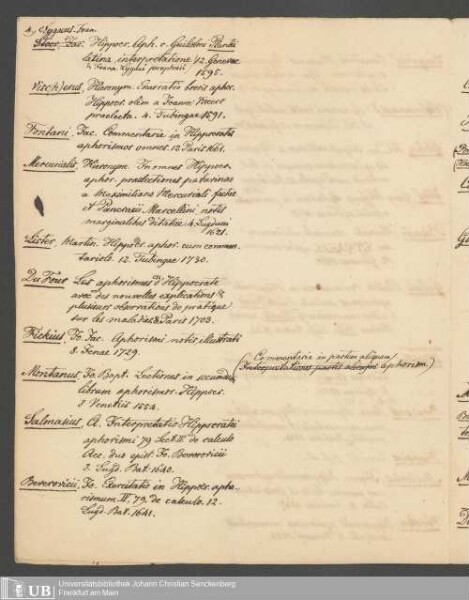 Zygaeus. Franc.
Hippocr. Aph. e Guilelmi Plantii
latina interpretatione 12. Genevae
1595.
Hieronym. Enarratio brevis aphor.
Hippocr. olim a Joanne
praelecta. 4. Tubingae 1591.
Fontani, Jac. Commentaria in Hippocratis
aphorismos omnes. 12 Paris
Mercurialis, Hieronym. In omnes Hippocr.
aphor. praelectiones patavinae
a Maximiliano Mercuriali
et Pancratii Marcellini notis
marginalibus 4. Lugduni
1621.
Lister, Martin. Hippocr. aphor. cum commen
tariolo. 12. Tubingae 1730.
Du Four Les aphorismes d'Hippocrate
avec des nouvelles explications &
plusieurs observations de pratique
sur les maladies. 8 Paris 1703.
Rickius, Jo. Jac. Aphorismi notis illustrati
8. Jenae 1729.
Commentaria in partem aliquam
(Interpretationes partis aphorism.)
Montanus, Jo. Bapt. Lectiones in secund.
librum aphorismor. Hippocr.
8 Venetiis 1554.
Salmasius, A. Interpretatio Hippocratis
aphorismi 79 Sect. IV. de calculo
Acc. duo epist. Jo. Beverovicii
8. Lugd. Bat. 1640.
Beverovicii, Jo. Exercitatio in Hippocr. apho-
rismum IV, 79. de calculo. 12.
Lugd. Bat. 1641.
UB
Universitätsbibliothek Johann Christian Senckenberg
Frankfurt am Main